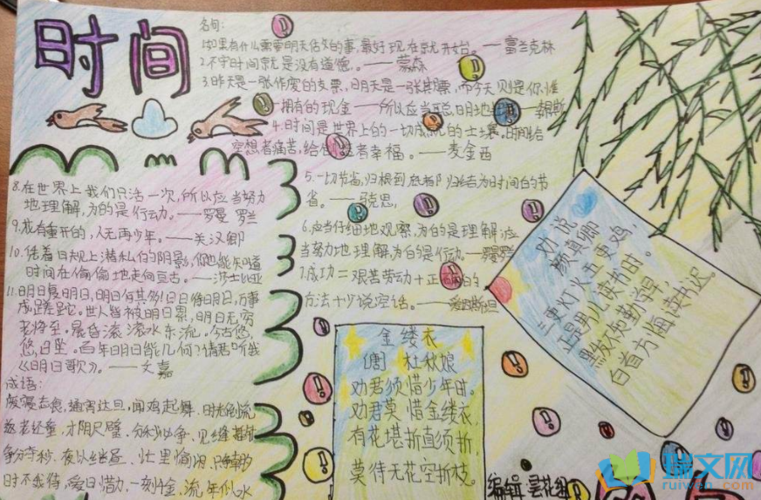 时间
名句:
1.如果有什么需要明天做的事,最好现在就开始。——富兰克林
2.不守时间就是没有道德。——蒙森
3.昨天是一张作废的支票,明天是一张期票,而今天则是你惟
一拥有的现金——所以应当聪明地
4.时间是世界上的一切成就的土壤,时间给
空想者痛苦,给 者幸福。——麦金西
5.一切节省,归根到底都归结为时间的节
省。——马克思
6.应当仔细地观察,为的是理解,应
当努力地理解,为的是行动——罗曼罗兰
7.成功=艰苦劳动+正 的
方法+少说空话。——爱因斯坦
8.在世界上我们只活一次,所以应当努力
地理解,为的是行动。——罗曼 罗兰
9.花有重开的,人无再少年。——关汉卿
10.凭着日规上潜私们的阴影,你也能知道
时间在偷偷地走向亘古。——莎士比亚
11.明日复明日,明日何其多!日日待明日,万事
成蹉跎。世人皆被明日累,明日无穷
老将至。晨昏滚滚水东流,今古悠
悠日坠。百年明日能几何?请君听我
《明日歌》。——文嘉
成语:
废寝忘食,通宵达旦,闻鸡起舞,时光倒流
返老还童,寸阴尺璧,分秒必争,见缝插针
争分夺秒,夜以继昼,
时不我待,爱日惜力,一刻千金,流年似水
金缕衣
(唐) 杜秋娘
劝君须惜少年时。
劝君莫惜金缕衣,
有花堪折直须折,
莫待无花空折枝。
劝说
颜真卿
三更灯火五更鸡,
正是男儿读书时。
黑发不知勤学早,
白首方悔读书迟。
编辑
瑞文网
ruiwen.com